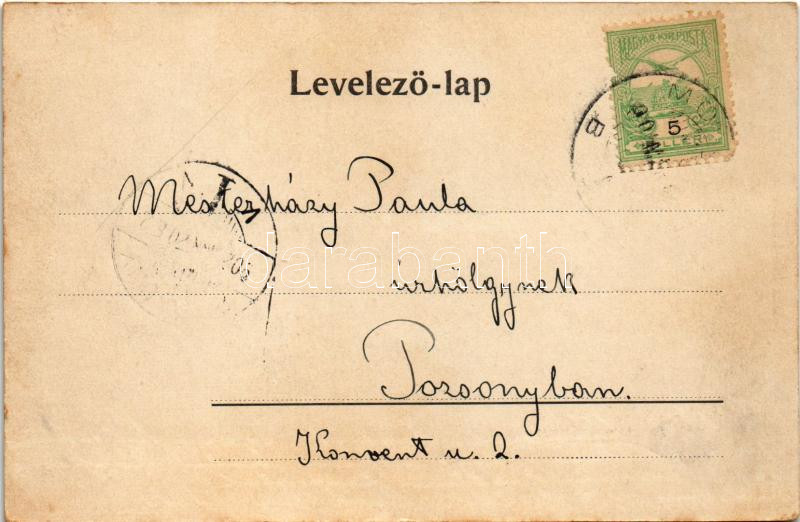 Levelező-lap
MAGYAR KIR. POSTA
5
FILLÉR
Mesterházy Paula
úrhölgynek
Pozsonyban.
Konvent u. 2.
darabanth